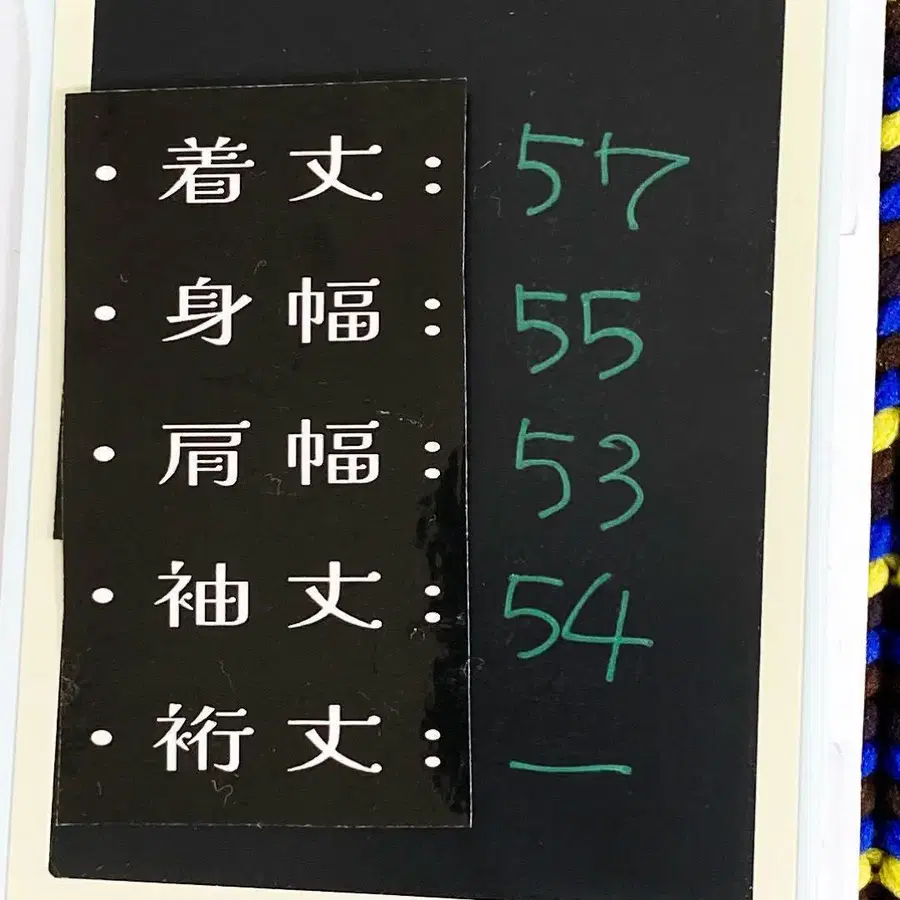 ・着丈: 57
・身幅: 55
・肩幅: 53
・袖丈: 54
・裄丈: —